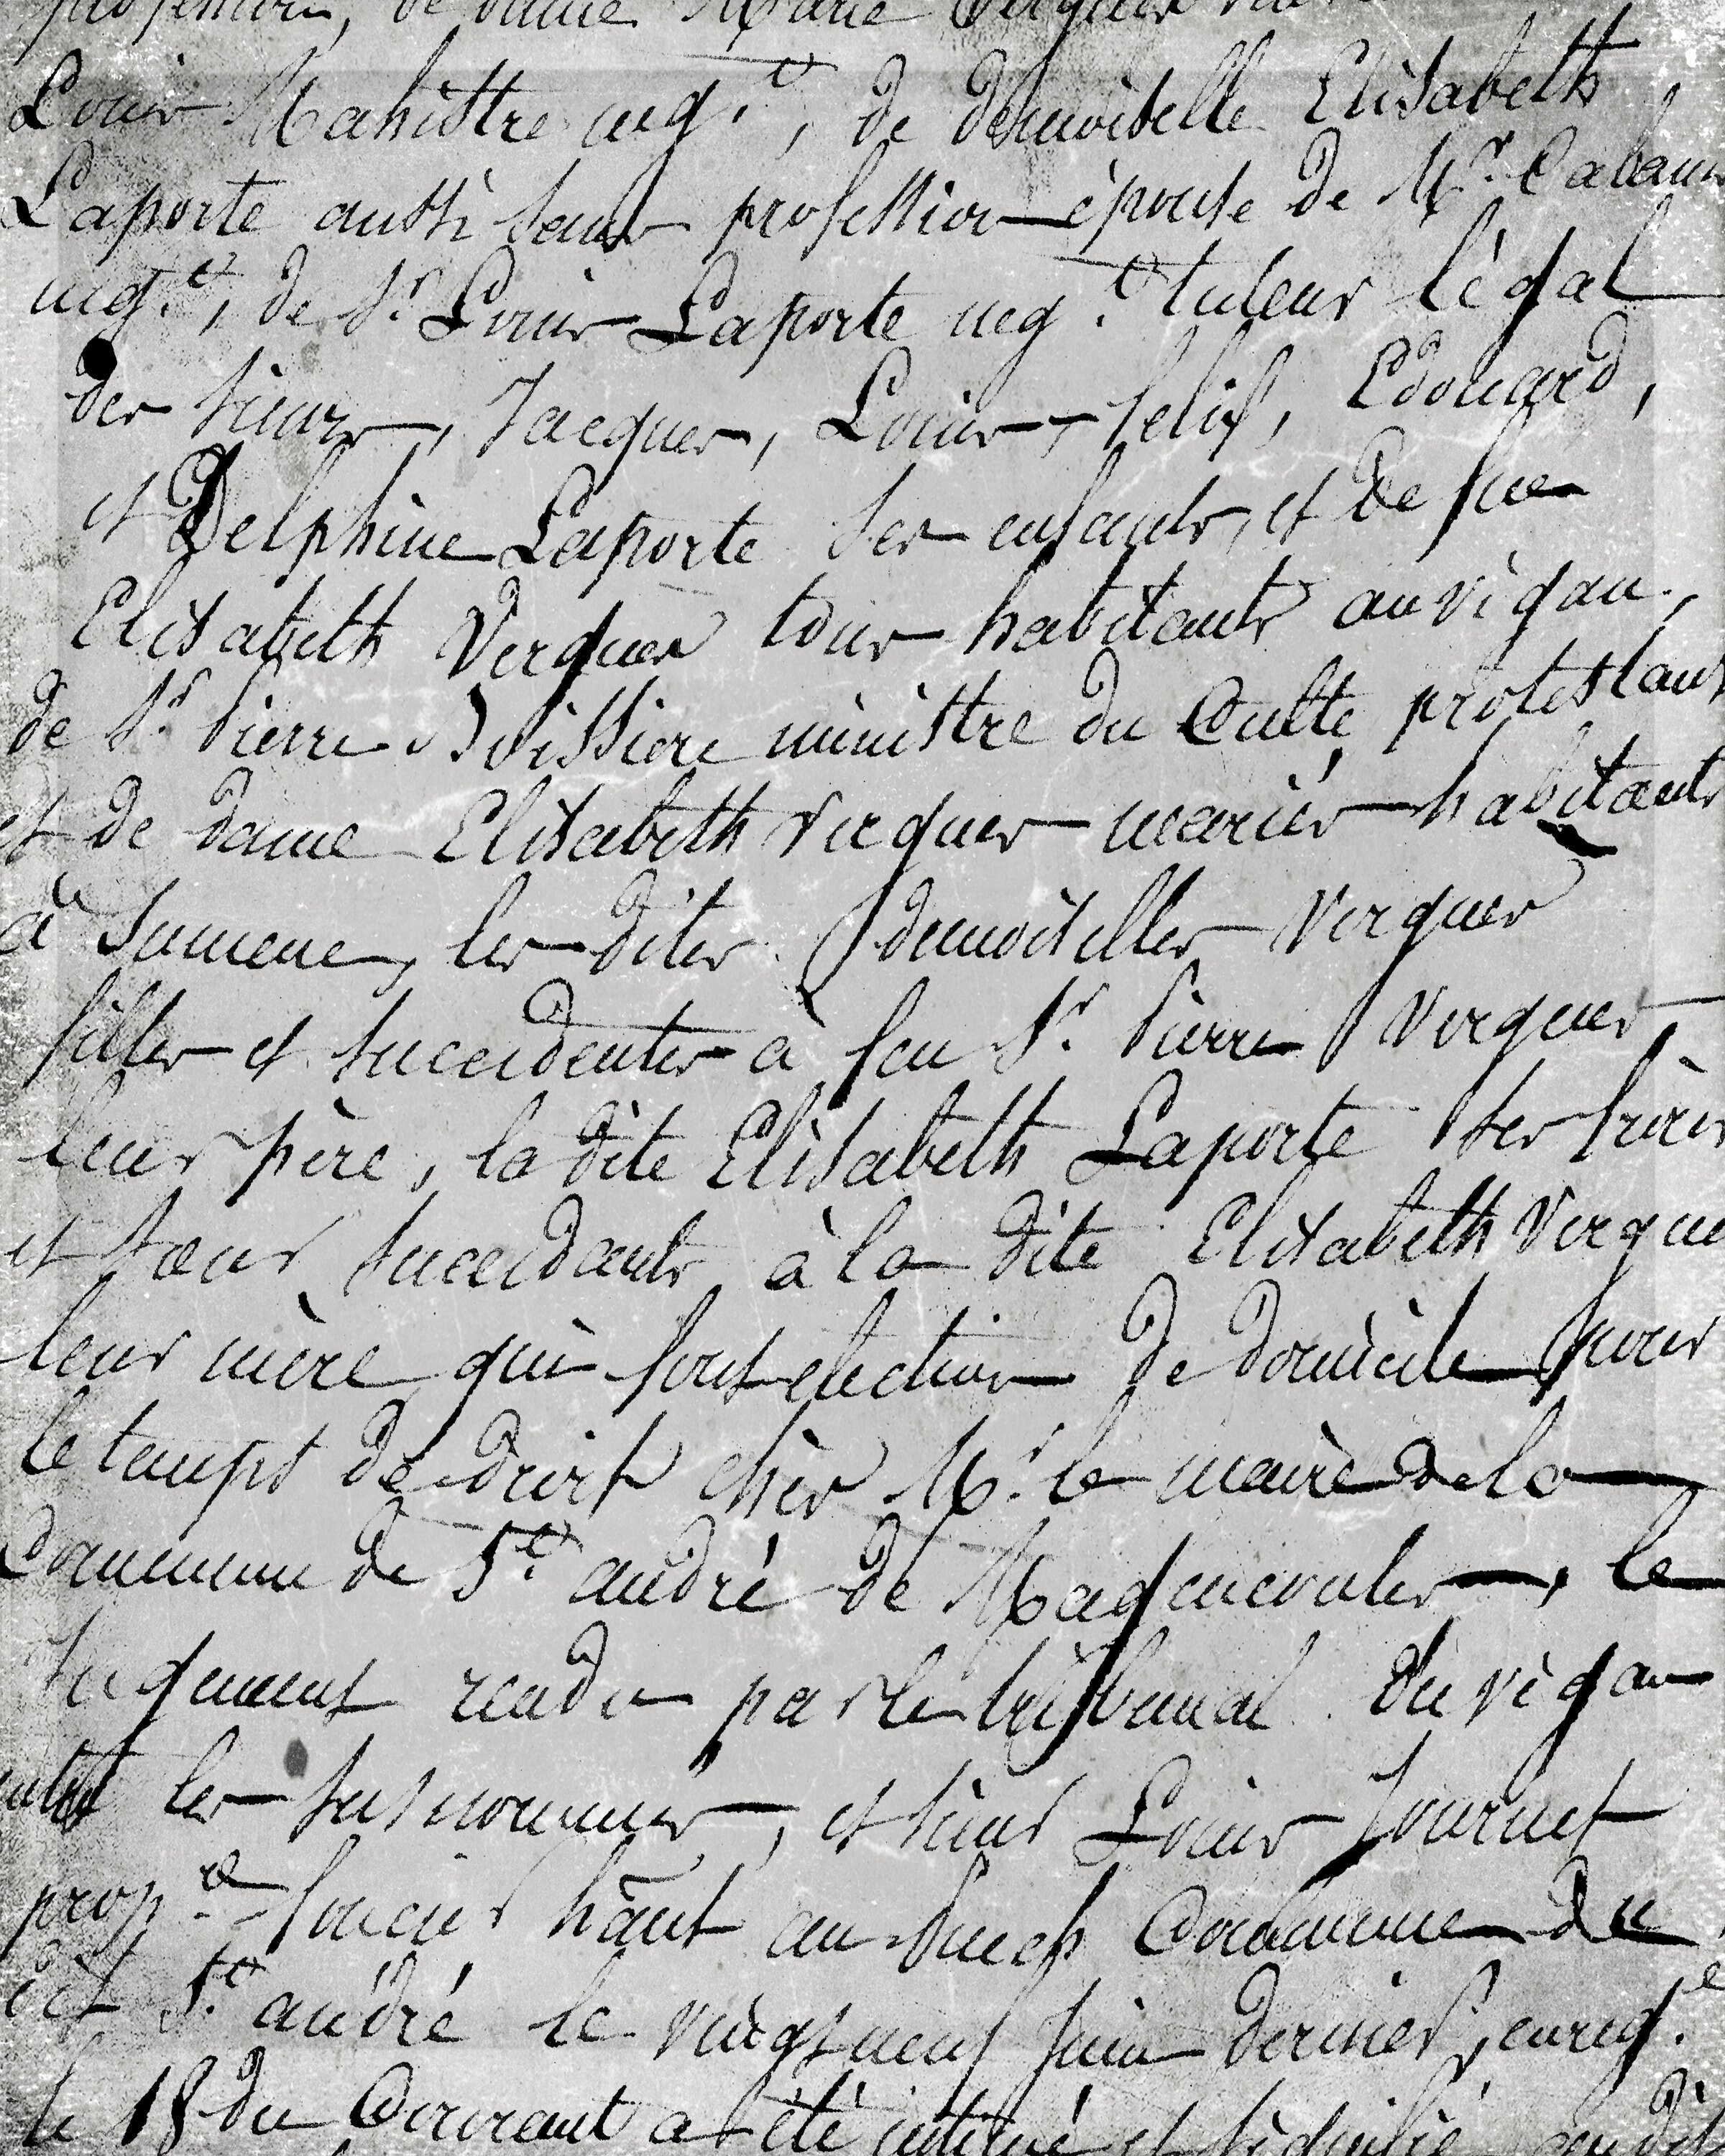 profession, de dame Marie Verguer
Louis Mahistre neg.t, de demoiselle Elisabeth
Laporte aussi sans profession épouse de Mr.
neg.t, de Sr. Louis Laporte neg.t tuteur légal
des sieurs, Jacques, Louis, felix, Edouard,
et Delphine Laporte ses enfants, et de feue
Elisabeth Verguer tous habitants au vigan,
de Sr. Pierre Boissiere ministre du Culte protestant
et de dame Elisabeth Verguer mariés habitants
à Sumene, les dites demoiselles Verguer
filles et succedentes à feu Sr. Pierre Verguer
leur père, la dite Elisabeth Laporte ses frères
et sœur succedants à la dite Elisabeth Vergue
leur mère, qui font election de domicile pour
le temps de droit chèr Mr. le maire de la
Commune de St. andré de Magencoules, le
Jugement rendu par le tribunal du vigan
entre les susnommés, et sieur Louis Journet
prop.re foncier hant au Puech Commune du
dit St. andré le vingt neuf juin dernier, enreg.é
le 18 du Courant a été intimé et signifié au dit